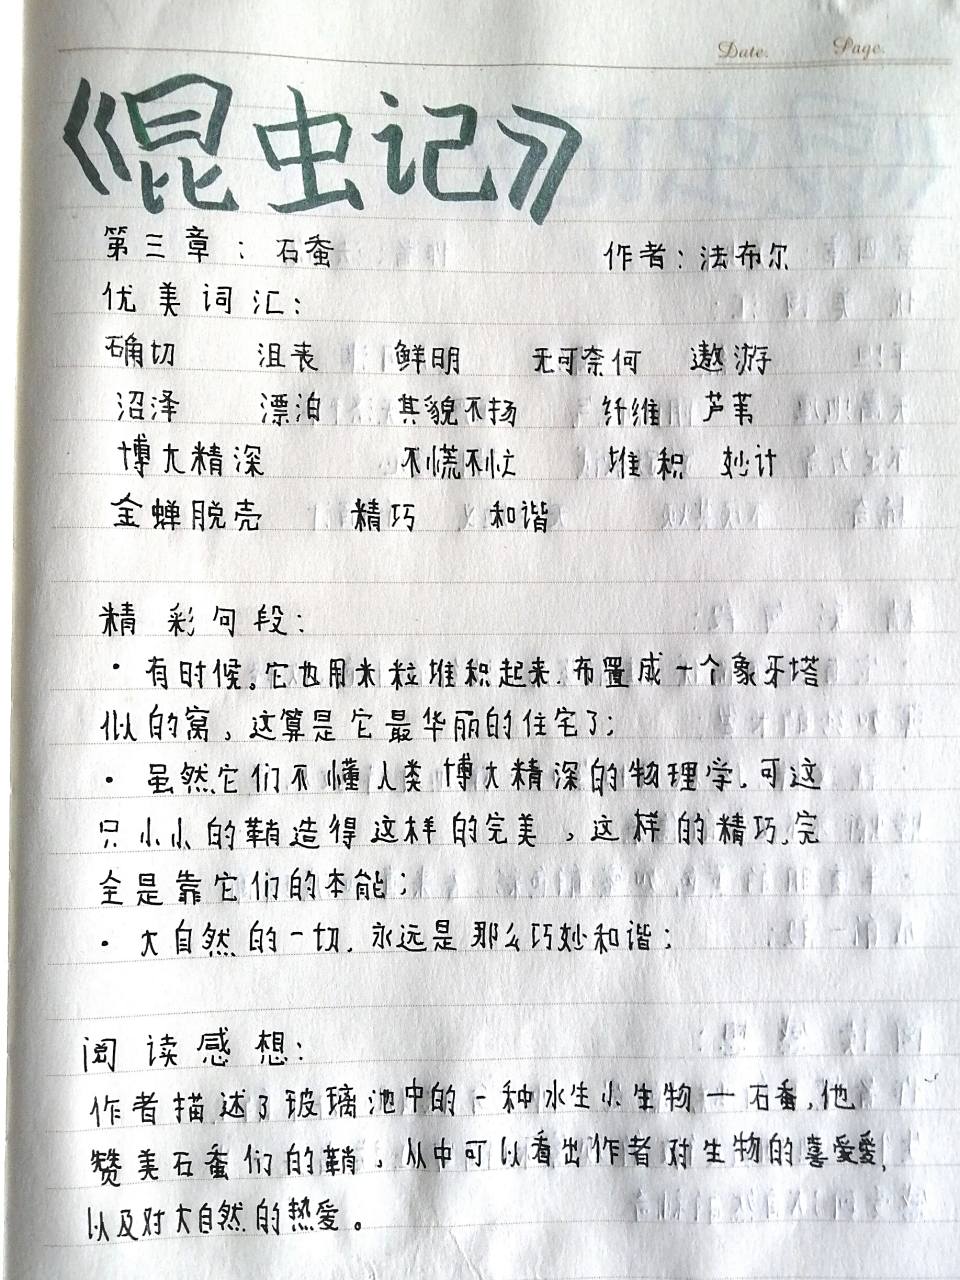 Date. Page.
《昆虫记》
第三章：石蚕 作者：法布尔
优美词汇：
确切 沮丧 鲜明 无可奈何 遨游
沼泽 漂泊 其貌不扬 纤维 芦苇
博大精深 不慌不忙 堆积 妙计
金蝉脱壳 精巧 和谐
精彩句段：
·有时候，它也用米粒堆积起来，布置成一个象牙塔
似的窝，这算是它最华丽的住宅了；
·虽然它们不懂人类博大精深的物理学，可这
只小小的鞘造得这样的完美，这样的精巧，完
全是靠它们的本能；
·大自然的一切，永远是那么巧妙和谐；
阅读感想：
作者描述了玻璃池中的一种水生小生物一石蚕，他
赞美石蚕们的鞘，从中可以看出作者对生物的喜爱爱，
以及对大自然的热爱。